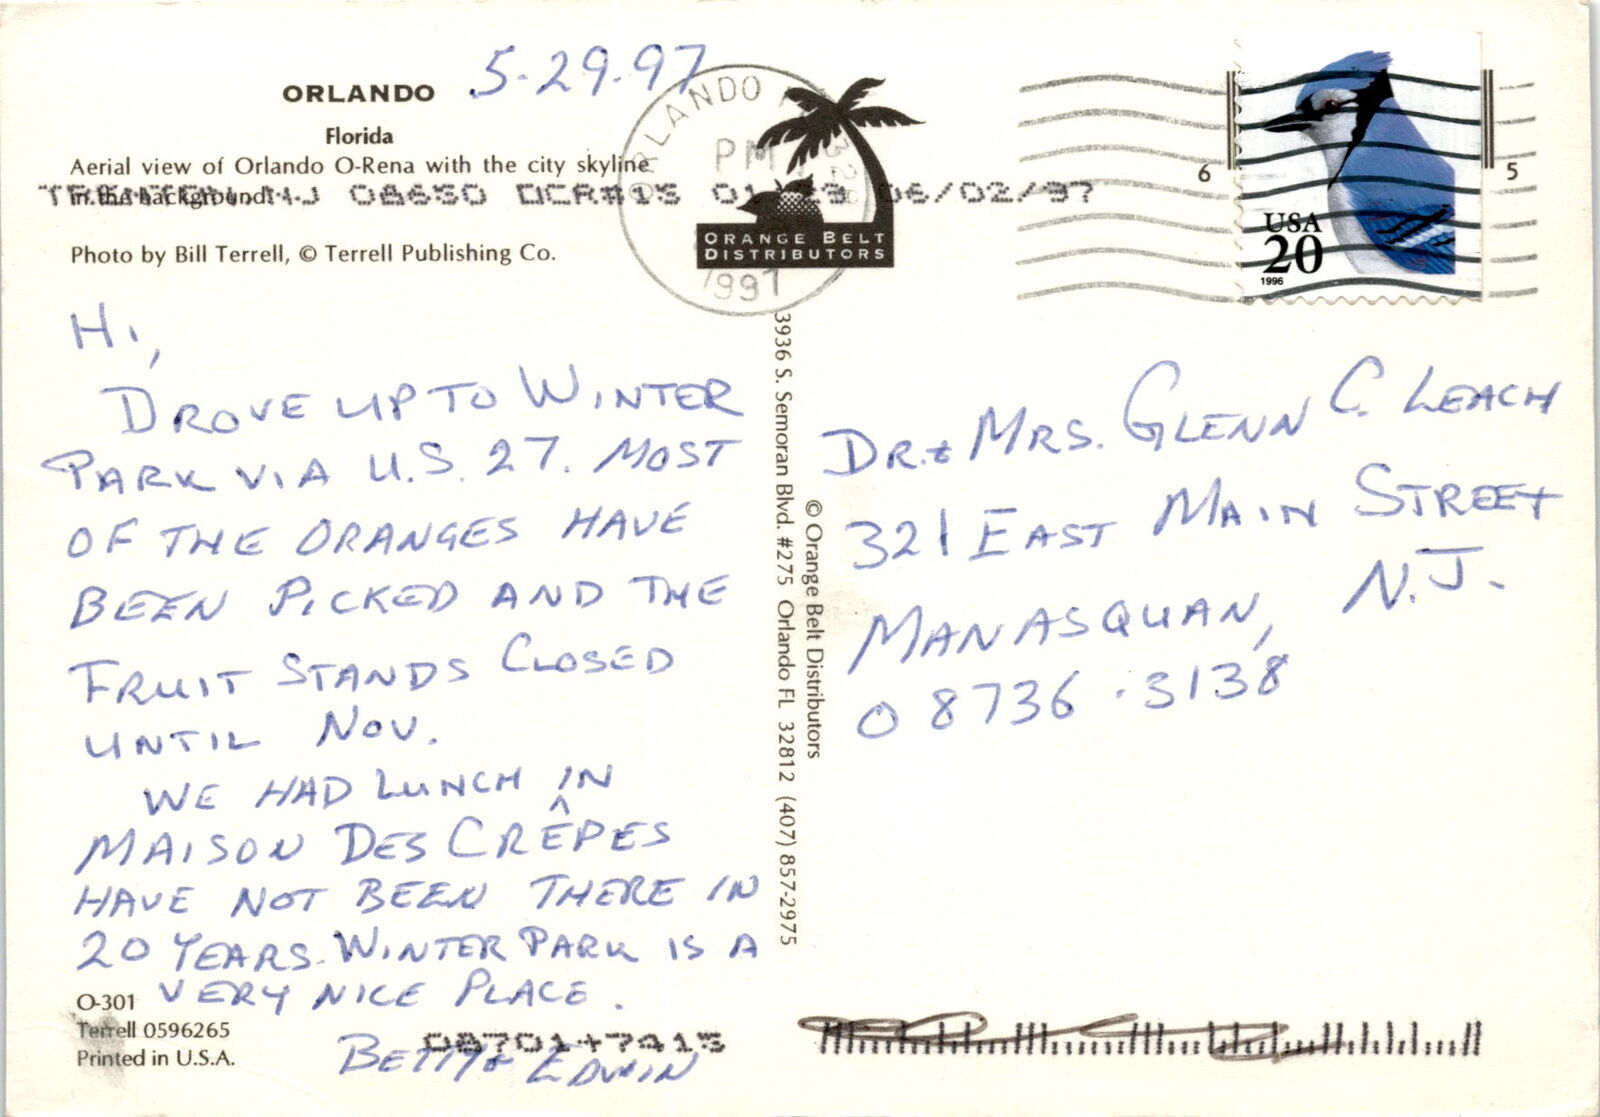 5-29-97
ORLANDO
Florida
Aerial view of Orlando O-Rena with the city skyline
in the background.
TRENTON, NJ 08650 OCR#15 01 23 06/02/97
Photo by Bill Terrell, © Terrell Publishing Co.
ORLANDO
PM
1997
ORANGE BELT
DISTRIBUTORS
6
5
USA
20
1996
HI,
DROVE UP TO WINTER
PARK VIA U.S. 27. MOST
OF THE ORANGES HAVE
BEEN PICKED AND THE
FRUIT STANDS CLOSED
UNTIL NOV.
WE HAD LUNCH IN
^
MAISON DES CRÊPES
HAVE NOT BEEN THERE IN
20 YEARS. WINTER PARK IS A
VERY NICE PLACE.
O-301
Terrell 0596265
Printed in U.S.A.
08701+7413
BETTY & EDWIN
3936 S. Semoran Blvd. #275 Orlando FL 32812 (407) 857-2975
© Orange Belt Distributors
DR. & MRS. GLENN C. LEACH
321 EAST MAIN STREET
MANASQUAN, N.J.
08736-3138